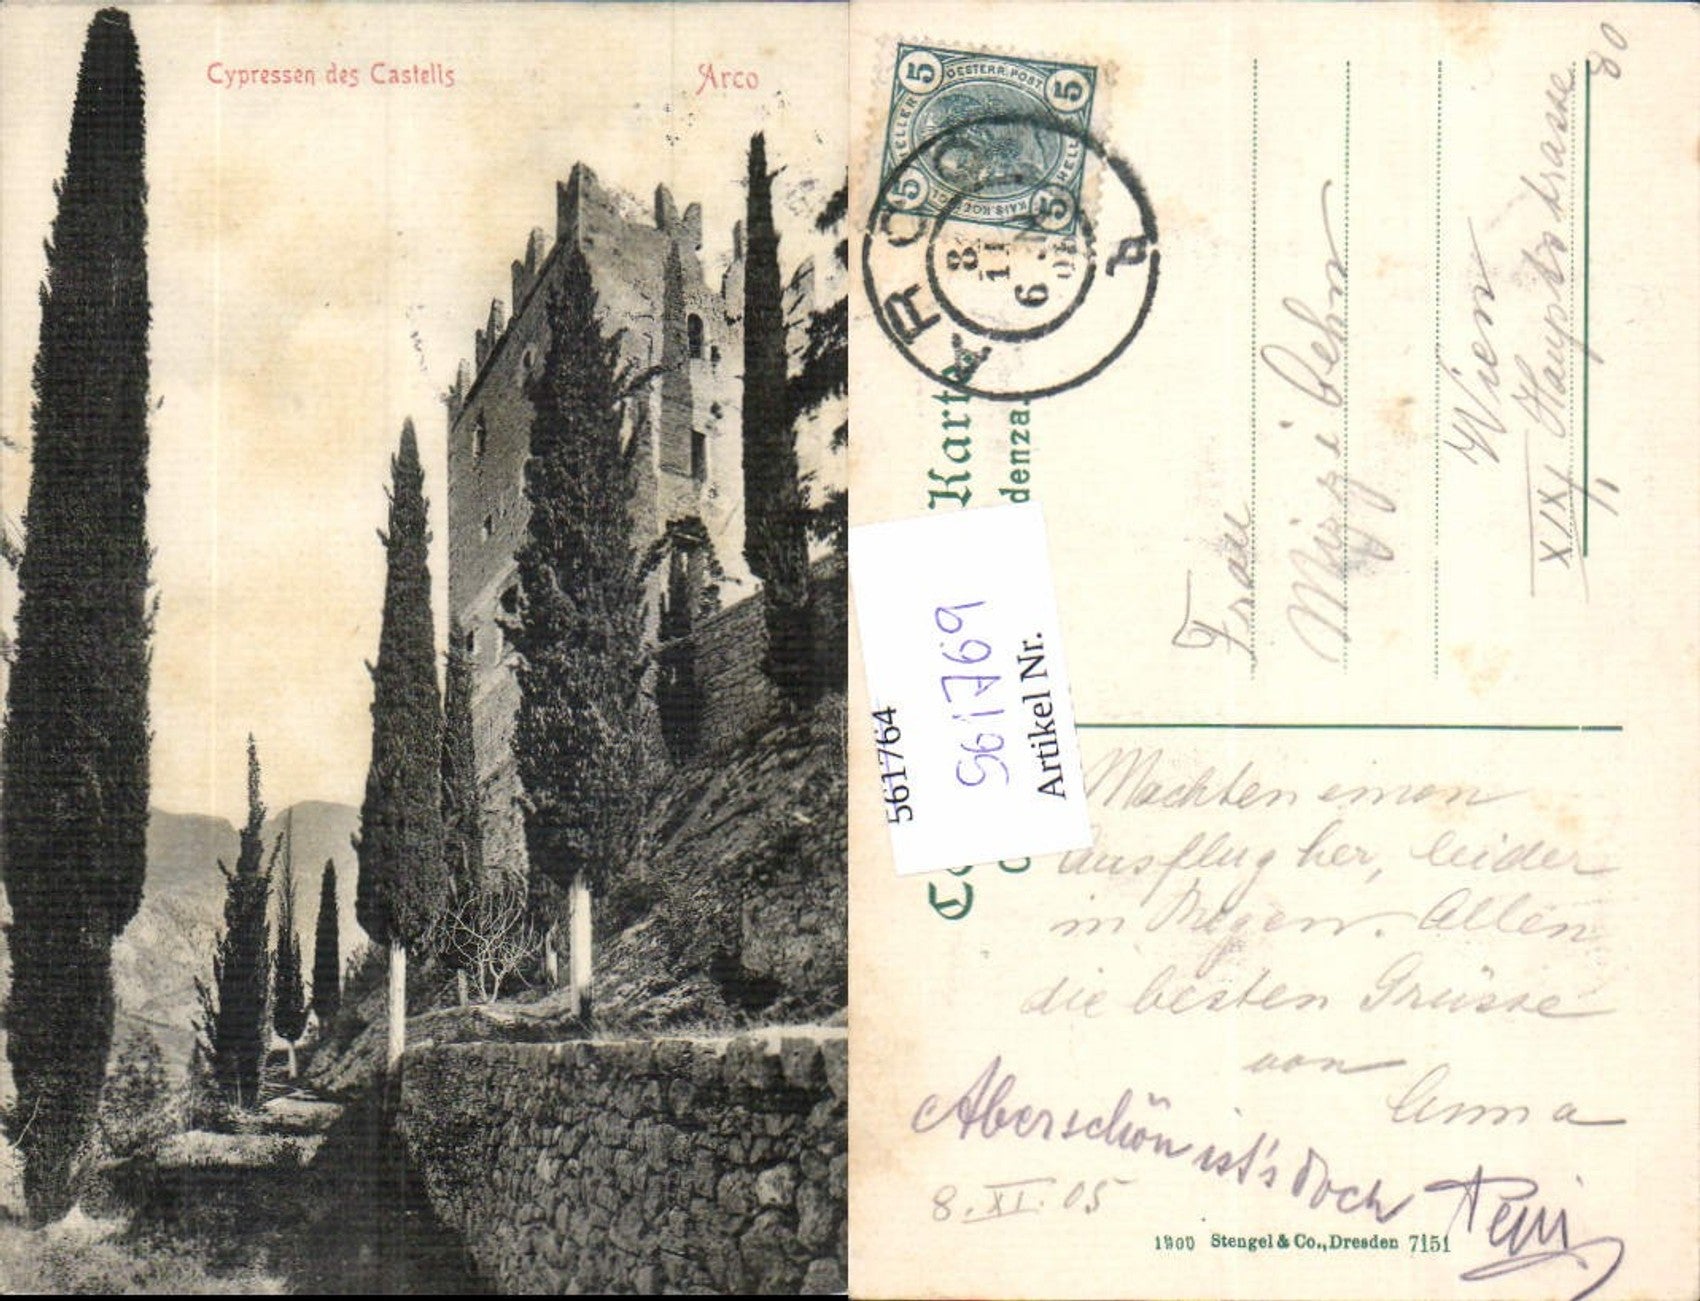 Cypressen des Castells Arco
5 OESTERR. POST 5
HELLER HELLER
5 KAIS. KOENIGL. 5
ARCO
8
11
6
05
a
Karte
denza.
561764
561769
Artikel Nr.
80
Frau
Mizzi Behm
Wien
XIX Hauptstrasse
Machten einen
Ausflug her, leider
in Regen. Allen
die besten Grüsse
von
Anna
Aber schön ist's doch
8. XI. 05
1900 Stengel & Co., Dresden 7151